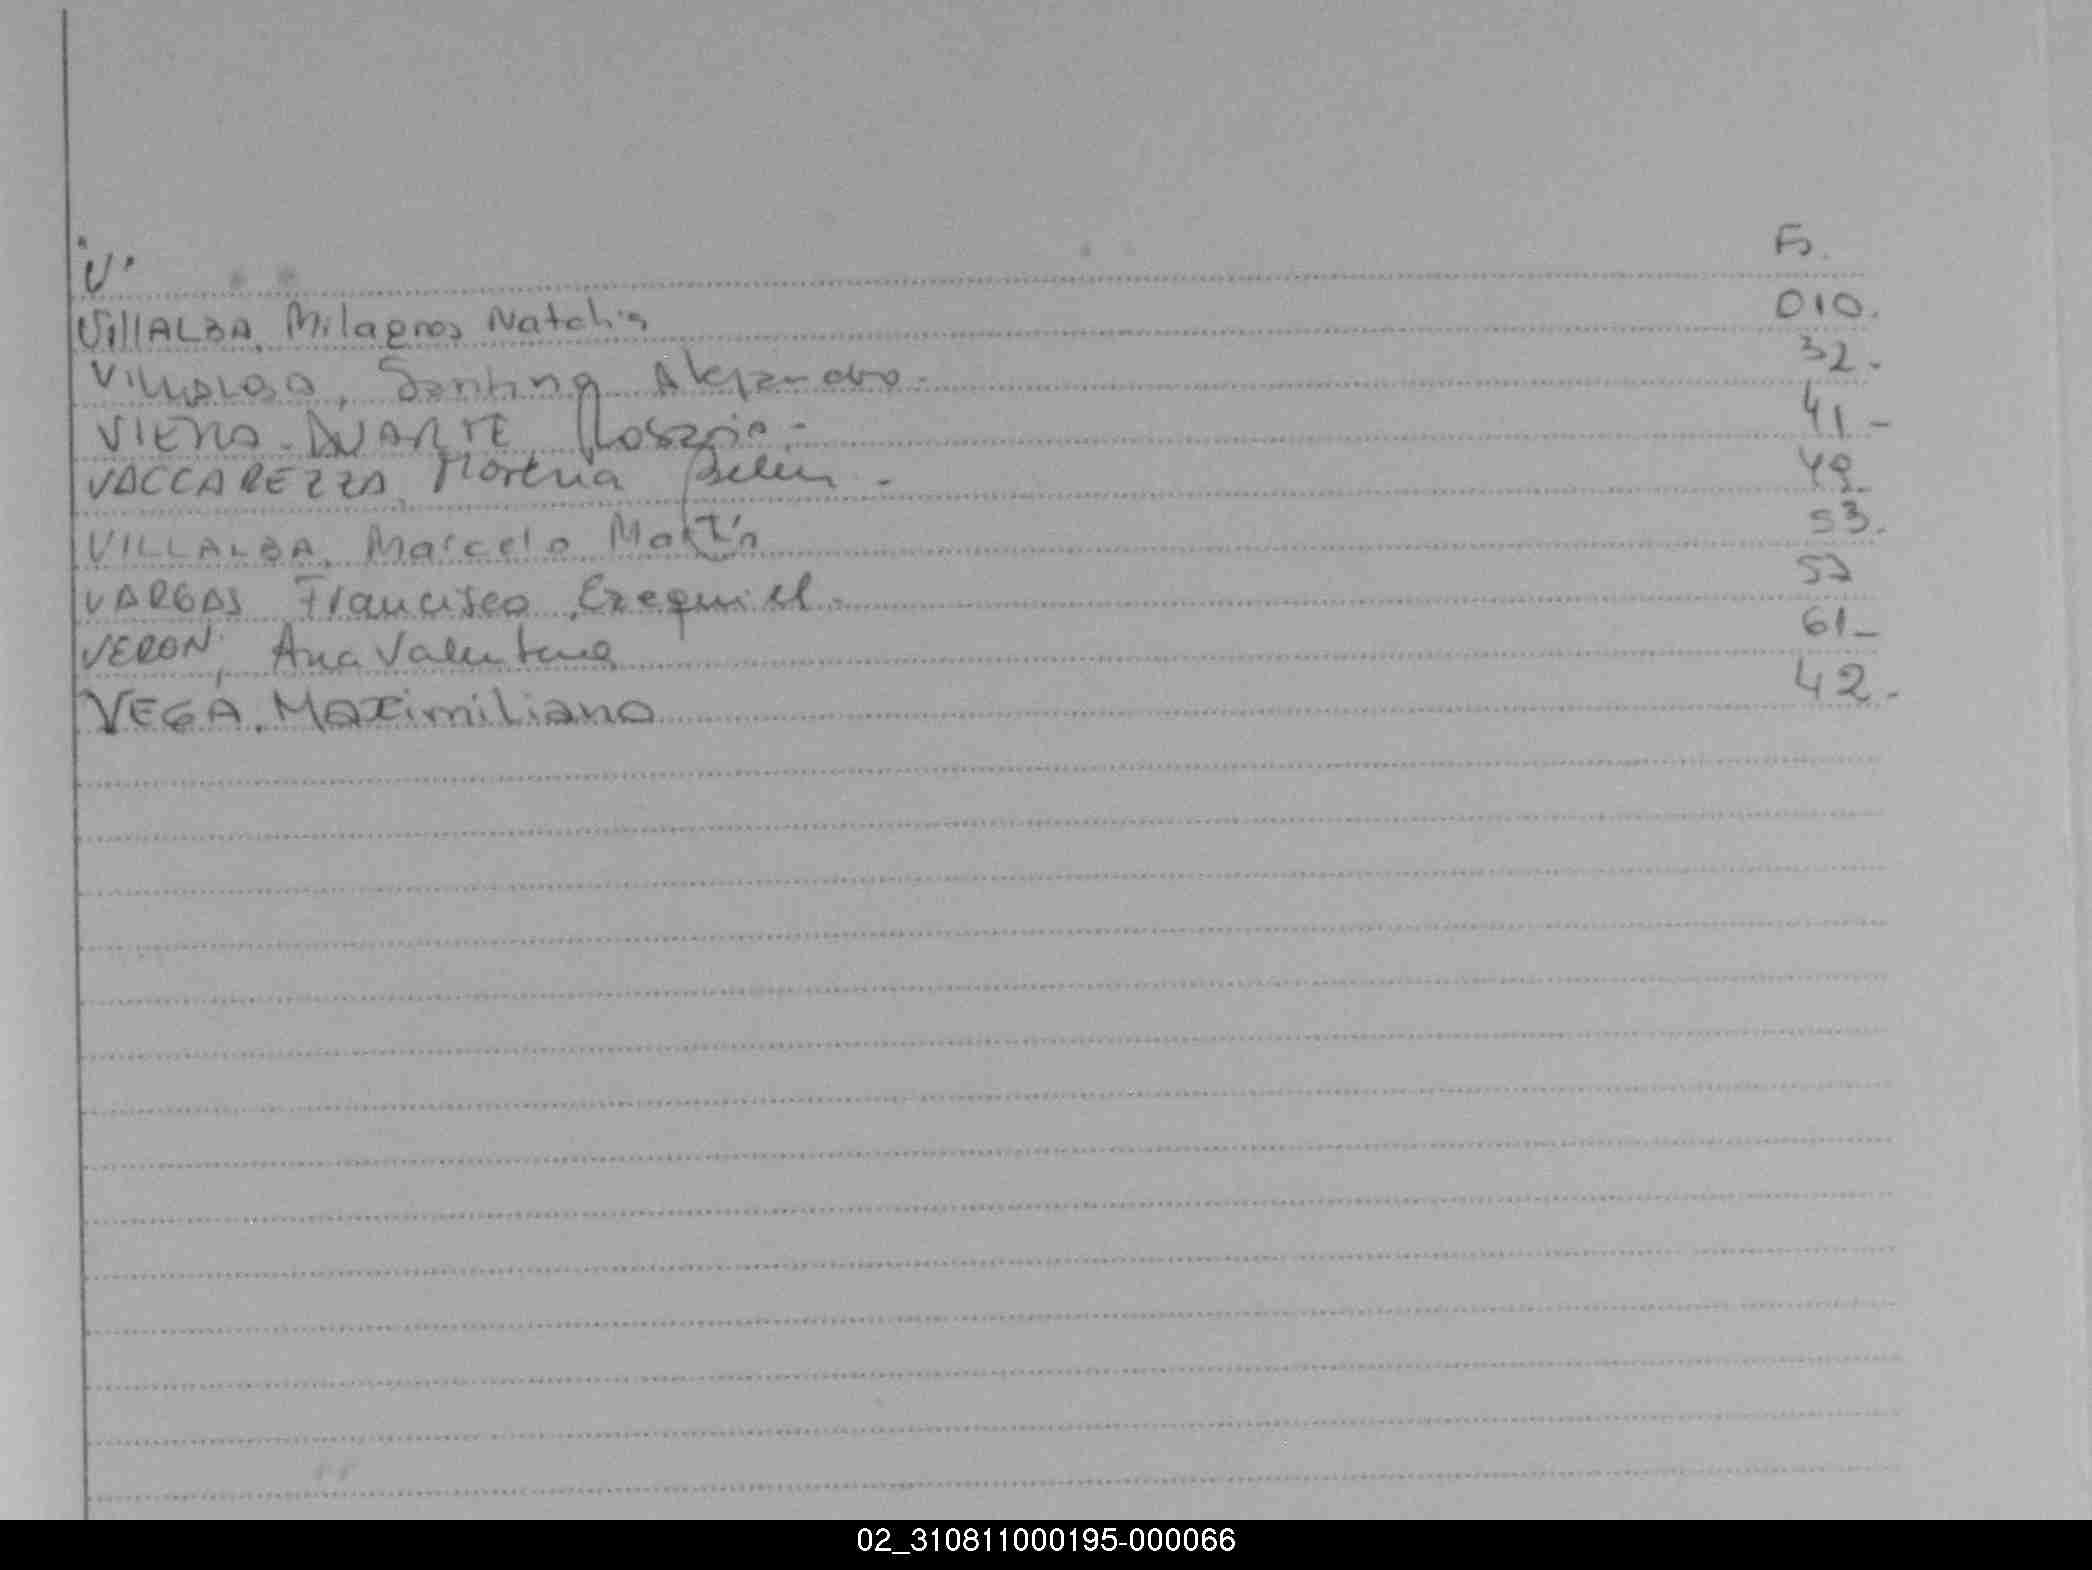 "V" Fs.
VillALBA, Milagros Natalia 010.
VillALBA, Santino Alejandro.- 32.-
VIERA - DUARTE Rosario.- 41-
VACCAREZZA, Morena Belen.- 49
VILLALBA, Marcelo Martín 53.
VARGAS Francisco Ezequiel.- 57
VERON, Ana Valentina 61-
VEGA, Maximiliano 42.-
02_310811000195-000066